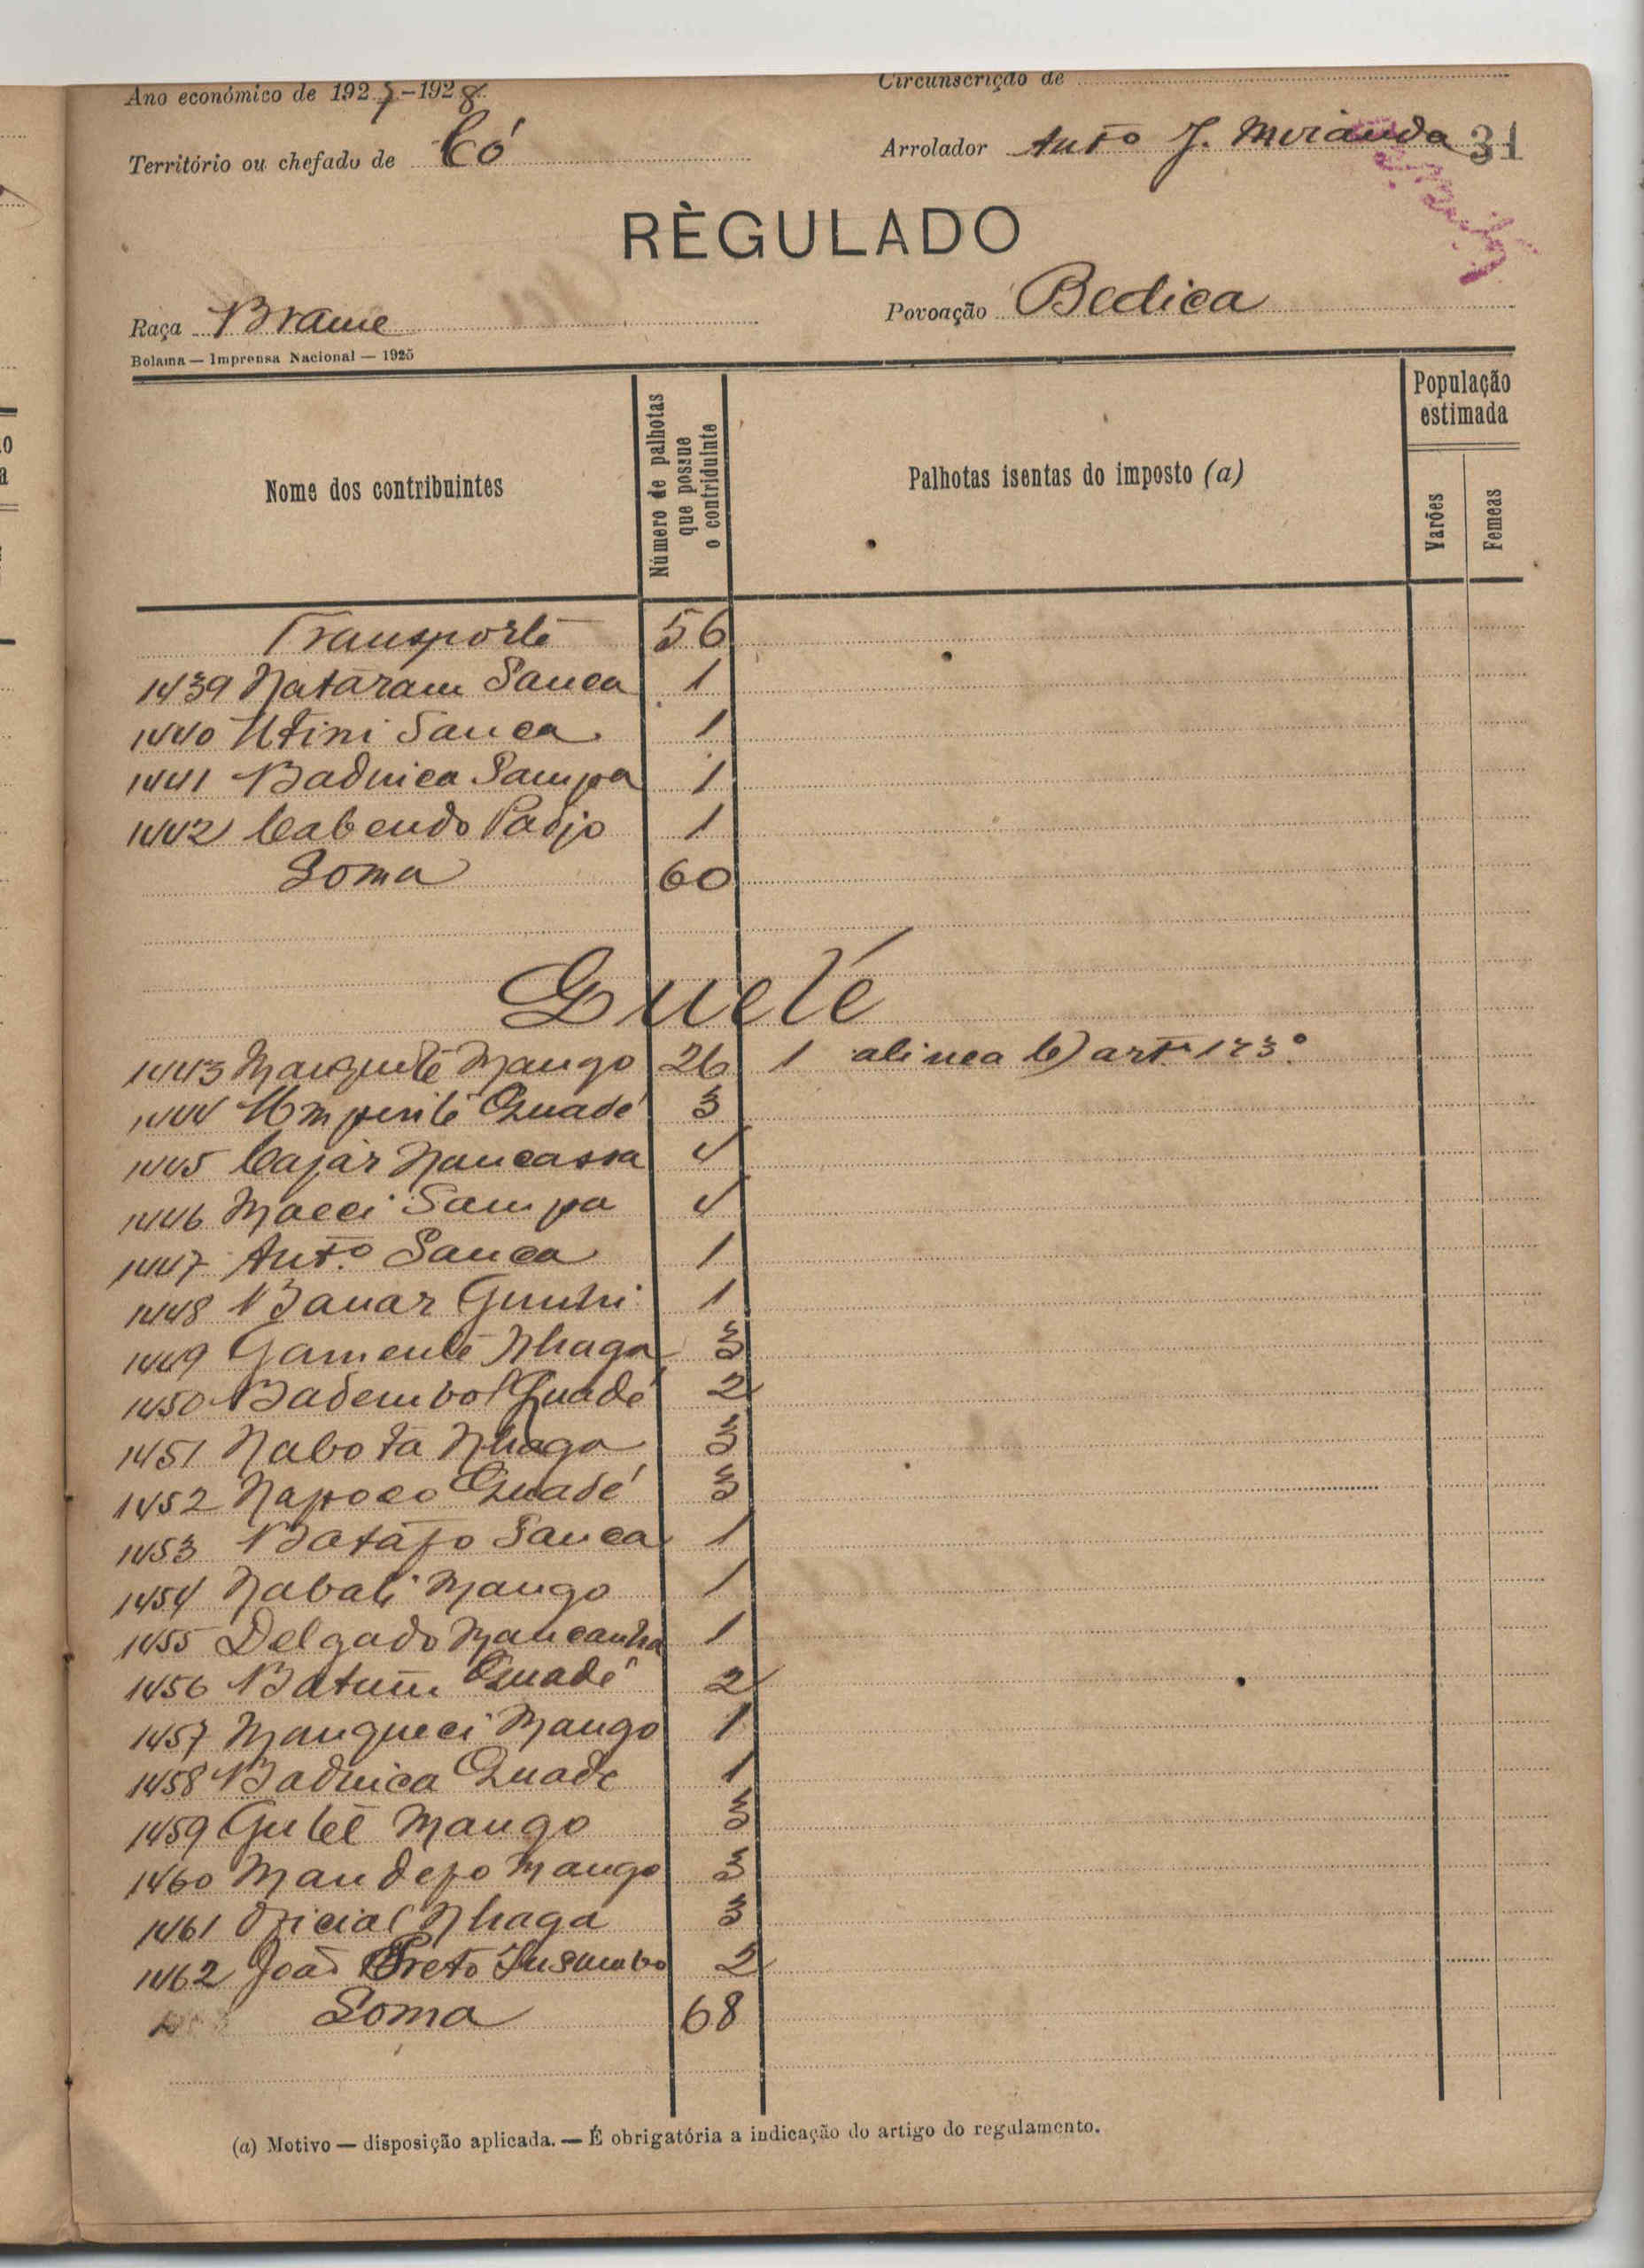 Ano económico de 1927-1928
Circunscrição de
Território ou chefado de Có
Arrolador Antº J. Miranda 31
RÈGULADO
Raça Brame
Povoação Bedica
Bolama — Imprensa Nacional — 1925
Nome dos contribuintes
Número de palhotas que possue o contriduinte
Palhotas isentas do imposto (a)
População estimada
Varões
Femeas
Transporte 56
1439 Nataram Sanca 1
1440 Utini Sanca 1
1441 Badnica Sampa 1
1442 Cabendo Padjo 1
Soma 60
Gueté
1443 Manguté Mango 26 1 alinea b) artº 173º
1444 Umpenté Quadé 3
1445 Cajár Nancassa 4
1446 Macci Sampa 4
1447 Antº Sanca 1
1448 Banar Gunhi 1
1449 Gamenté Nhaga 3
1450 Badembol Quadé 2
1451 Nabota Nhaga 3
1452 Napoco Quadé 3
1453 Batajo Sanca 1
1454 Nabali Mango 1
1455 Delgado Mancanha 1
1456 Batum Quadé 2
1457 Mangueci Mango 1
1458 Badnica Quade 1
1459 Guleé Mango 3
1460 Mandejo Mango 3
1461 Oficial Nhaga 3
1462 João Preto Insumbo 2
Soma 68
(a) Motivo — disposição aplicada. — É obrigatória a indicação do artigo do regulamento.